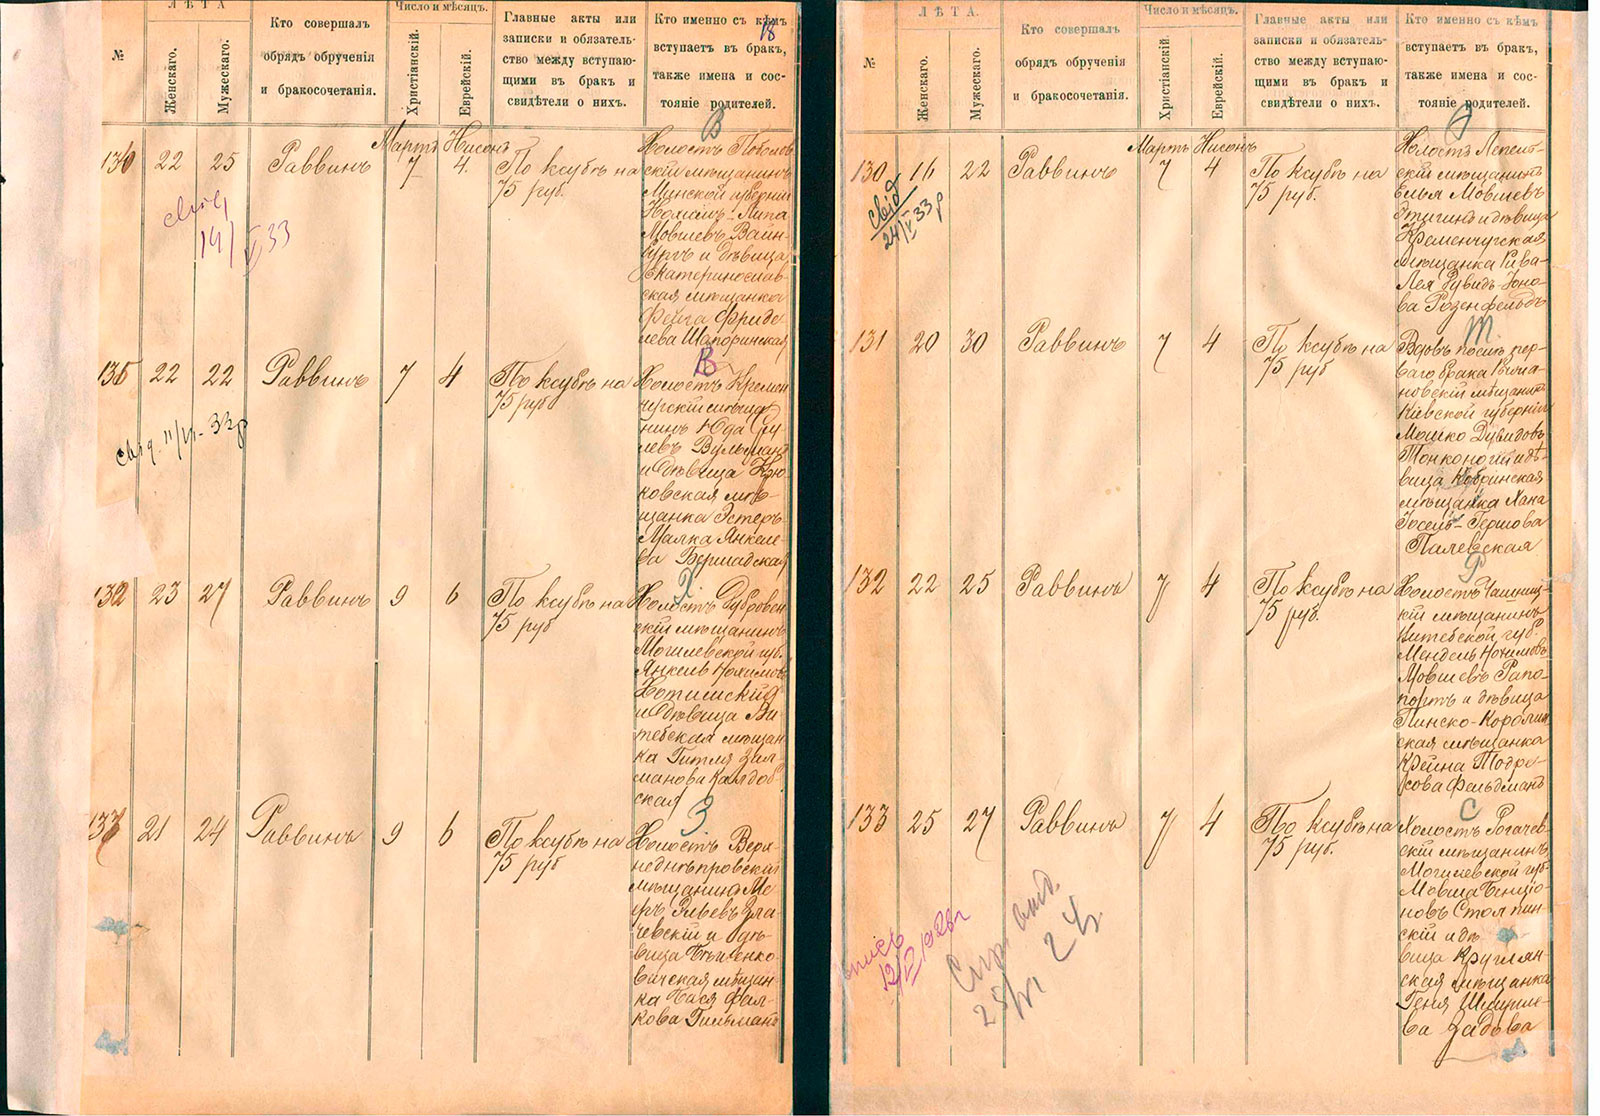 18
№
ЛѢТА
Женскаго.
Мужескаго.
Кто совершалъ
обрядъ обрученія
и бракосочетанія.
Число и мѣсяцъ.
Христіанскій.
Еврейскій.
Главные акты или
записки и обязатель-
ство между вступаю-
щими въ бракъ и
свидѣтели о нихъ.
Кто именно съ кѣмъ
вступаетъ въ бракъ,
также имена и сос-
тояніе родителей.
В
22 25 Раввинъ
Мартъ Нисонъ
7 4.
По ксубѣ на
75 руб.
Холостъ
скій мѣщанинъ
Минской губерніи
Нохимъ-Липа
Мовшевъ Вайн-
бургъ и дѣвица
Екатеринослав-
ская мѣщанка
Фейга Фриде-
лева Шапоринская
В
22 22 Раввинъ 7 4
По ксубѣ на
75 руб
Холостъ Кремен
чугскій мѣща
нинъ Юда Сру
левъ Вульфманъ
и дѣвица Крю-
ковская мѣ-
щанка Эстеръ-
Малка Янкеле-
ва Бершадская
132 23 27 Раввинъ 9 6
По ксубѣ на
75 руб
Х
Холостъ Дубровен
скій мѣщанинъ
Могилевской губ.
Янкель Нохимовъ
Хотимскій
и дѣвица Ви
тебская мѣщан
ка Гитля Зал
манова
ская
З
21 24 Раввинъ 9 6
По ксубѣ на
75 руб
Холостъ Верх
неднѣпровскій
мѣщанинъ Ме
еръ
чевскій и дѣ-
вица
вичская мѣщан
ка Бася Фал-
кова Гильманъ
№
ЛѢТА.
Женскаго.
Мужескаго.
Кто совершалъ
обрядъ обрученія
и бракосочетанія.
Число и мѣсяцъ.
Христіанскій.
Еврейскій.
Главные акты или
записки и обязатель-
ство между вступаю-
щими въ бракъ и
свидѣтели о нихъ.
Кто именно съ кѣмъ
вступаетъ въ бракъ,
также имена и сос-
тояніе родителей.
130 16 22 Раввинъ
Мартъ Нисонъ
7 4
По ксубѣ на
75 руб.
Холостъ Лепель-
скій мѣщанинъ
Елья Мовшевъ
Этигинъ и дѣвица
Кременчугская
мѣщанка Рива-
Лея Дувидъ-Іоно-
ва Розенфельдъ
131 20 30 Раввинъ 7 4
По ксубѣ на
75 руб
Т
Вдовъ послѣ пер-
ваго брака
новскій мѣщанинъ
Кіевской губерніи
Мошко Дувидовъ
Тонконогій и дѣ-
вица Кобринская
мѣщанка Хана
Іосель-Гершова
Палевская
132 22 25 Раввинъ 7 4
По ксубѣ на
75 руб.
Р
Холостъ Чашниц-
кій мѣщанинъ
Витебской губ.
Мендель Нохимовъ
Мовшевъ Рапо-
портъ и дѣвица
Пинско-Каролин
ская мѣщанка
Крейна Тодре-
сова Фельдманъ
133 25 27 Раввинъ 7 4
По ксубѣ на
75 руб.
С
Холостъ Рогачев-
скій мѣщанинъ
Могилевской губ.
Мовша Бенціо-
новъ Столпин-
скій и дѣ
вица Круглян-
ская мѣщанка
Геня Шмуйле-
ва Задова